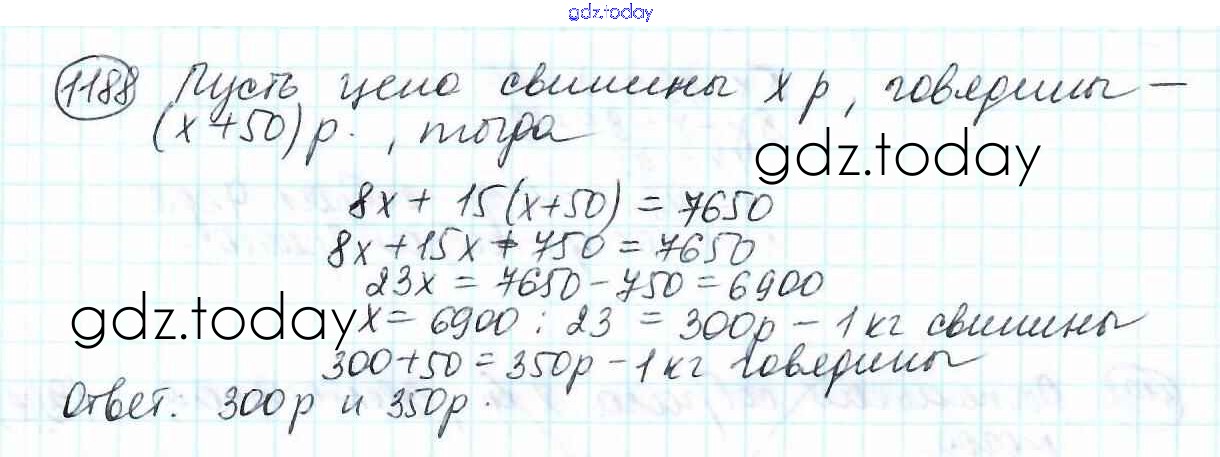 gdz.today
1188 Пусть цена свинины x р, говядины –
(x+50) р., тогда
gdz.today
8x + 15(x+50) = 7650
8x + 15x + 750 = 7650
23x = 7650 - 750 = 6900
gdz.today
x = 6900 : 23 = 300р – 1 кг свинины
300+50 = 350р – 1 кг говядины
Ответ: 300р и 350р.